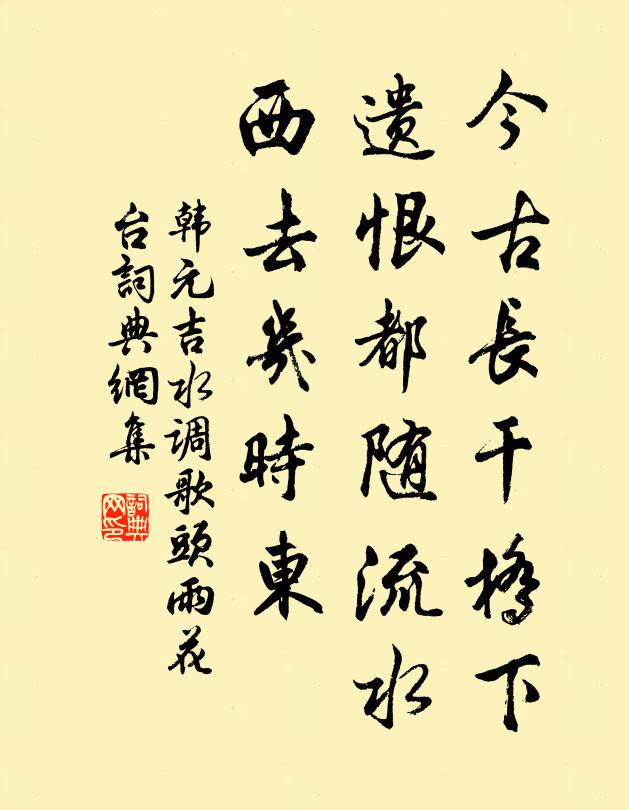 今古長干橋下
遗恨都随流水
西去幾時東
韩元吉水调歌頭雨花
台詞典網集
詞典网印